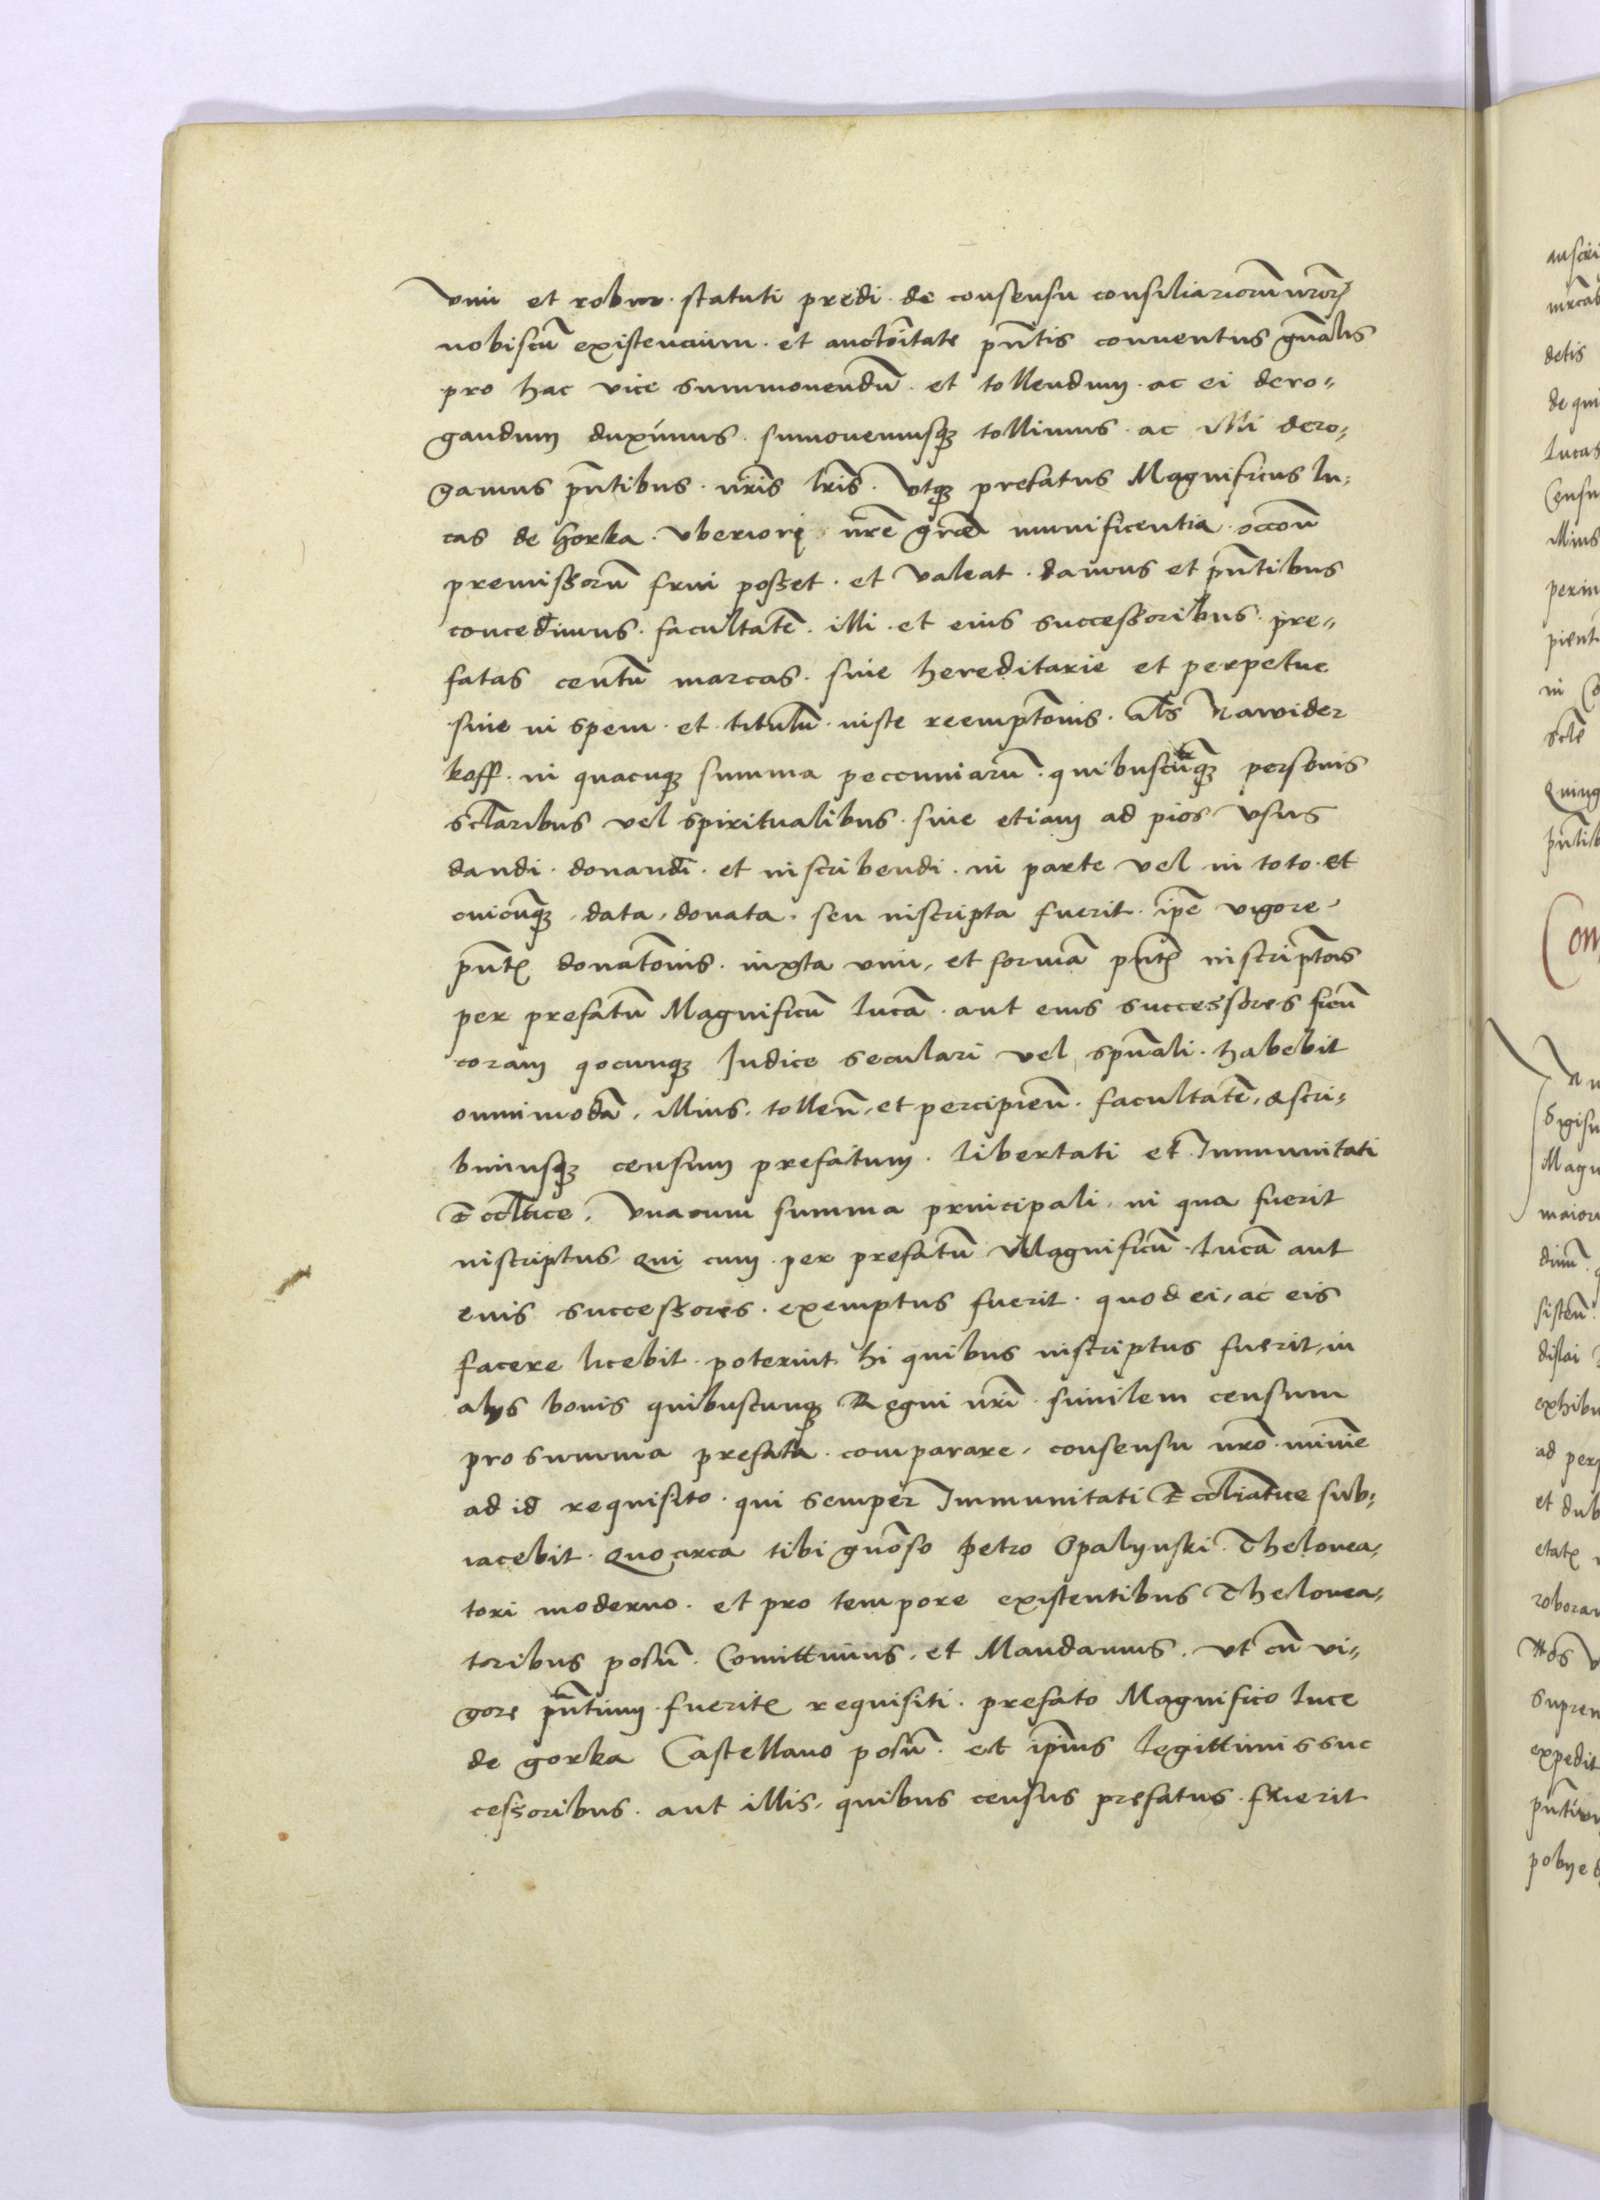 vim et robur · statuti predi · de consensu consiliariorum nr̄orꝫ
nobiscū existencium · et auctoītate pn̄tis conuentus gn̄alis
pro hac vice summouendū · et tollendum · ac ei dero⸗
gandum duximus · sumouemusqꝫ tollimus · ac illi dero⸗
gamus pn̄tibus · nr̄is lr̄is · vtqꝫ prefatus Magnificus lu⸗
cas de Gorka · vberiori nr̄e grē munificentia · occōn
premissorū frui posset · et valeat · damus et pn̄tibus
concedimus · facultatē · illi · et eius successoribus · pre⸗
fatas centū marcas · siue hereditarie et perpetue
siue in spem · et titulū · iuste reemptōnis · al̄s Nawider
koff · in quacuqꝫ summa peccuniarū · quibuscūqꝫ personis
sc̄laribus vel spiritualibus · siue etiam ad pios vsus
dandi · donandi · et inscribendi · in parte vel in toto · et
cuicūqꝫ · data · donata · seu inscripta fuerit · ip̄e vigore ·
pn̄tꝭ donatōnis · iuxta vim · et formā pn̄tꝭ inscriptōis
per prefatū Magnificū lucā · aut eius successores sicū
coram qocunqꝫ Iudice seculari vel sp̄uali · habebit
omnimodā · illius · tollen̄ · et percipien̄ · facultatē · ascri⸗
bimusqꝫ censum prefatum · libertati et Immunitati
Eccl̄tice · Vnacum summa principali · in qua fuerit
inscriptus · Qui cum · per prefatū Magnificū · lucā aut
euis successores · exemptus fuerit · quod ei · ac eis
facere licebit · poterint hi quibus inscriptus fuerit · in
alys bonis quibuscunqꝫ Regni nr̄i · similem censum
pro summa prefata · comparare · consensu nr̄o · minime
ad id requisito · qui semper Immunitati Eccl̄iatice sub⸗
iacebit · Quocirca tibi gn̄oso Petro Opalynski · Thelonea⸗
tori moderno · et pro tempore existentibus Thelonea⸗
toribus posn̄ · Comittimus · et Mandamus · vt cū vi⸗
gore pn̄tium · fueritꝭ requisiti · prefato Magnifico luce
de gorka Castellano posn̄ · et ip̄ius legittimis suc
cessoribus · aut illis · quibus census prefatus · fuerit